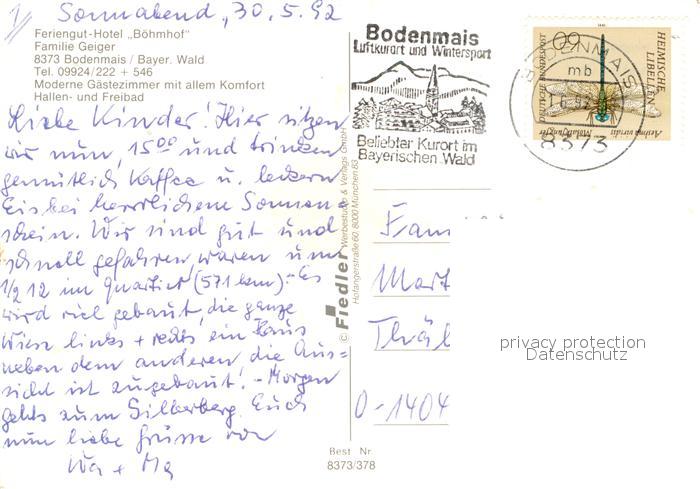 1/ Sonnabend, 30.5.92
Feriengut-Hotel „Böhmhof"
Familie Geiger
8373 Bodenmais / Bayer. Wald
Tel. 09924/222 + 546
Moderne Gästezimmer mit allem Komfort
Hallen- und Freibad
Liebe Kinder! Hier sitzen
wir nun, 15⁰⁰ und trinken
gemütlich Kaffee u. leckern
Eis bei herrlichem Sonnen=
schein. Wir sind gut und
schnell gefahren, waren um
1/2 12 im Quartier (571 km). – Es
wird viel gebaut, die ganze
Wiese links + rechts ein Haus
neben dem anderen die Aus=
sicht ist zugebaut! – Morgen
gehts zum Silberberg. Euch
nun liebe Grüsse von
Va + Ma
© Fiedler Werbestudio & Verlags GmbH
Hofangerstraße 60, 8000 München 83
Best Nr.
8373/378
Bodenmais
Luftkurort und Wintersport
Beliebter Kurort im
Bayerischen Wald
60
DEUTSCHE BUNDESPOST
HEIMISCHE
LIBELLEN
BODENMAIS
mb
8373
Fam
Mart
Thäl
O-1404
privacy protection
Datenschutz